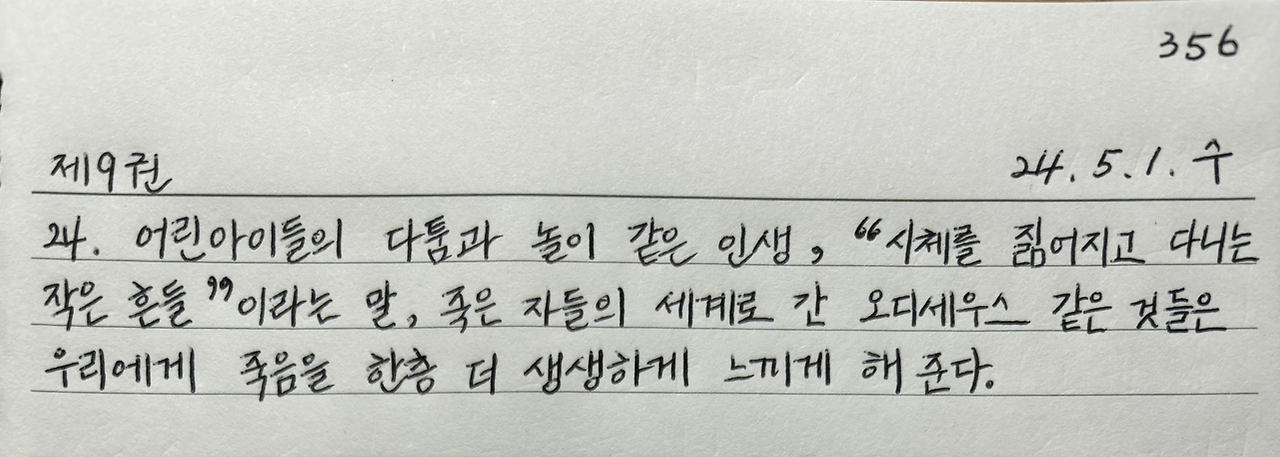 356
제9권 24.5.1. 수
24. 어린아이들의 다툼과 놀이 같은 인생, “시체를 짊어지고 다니는
작은 혼들”이라는 말, 죽은 자들의 세계로 간 오디세우스 같은 것들은
우리에게 죽음을 한층 더 생생하게 느끼게 해 준다.